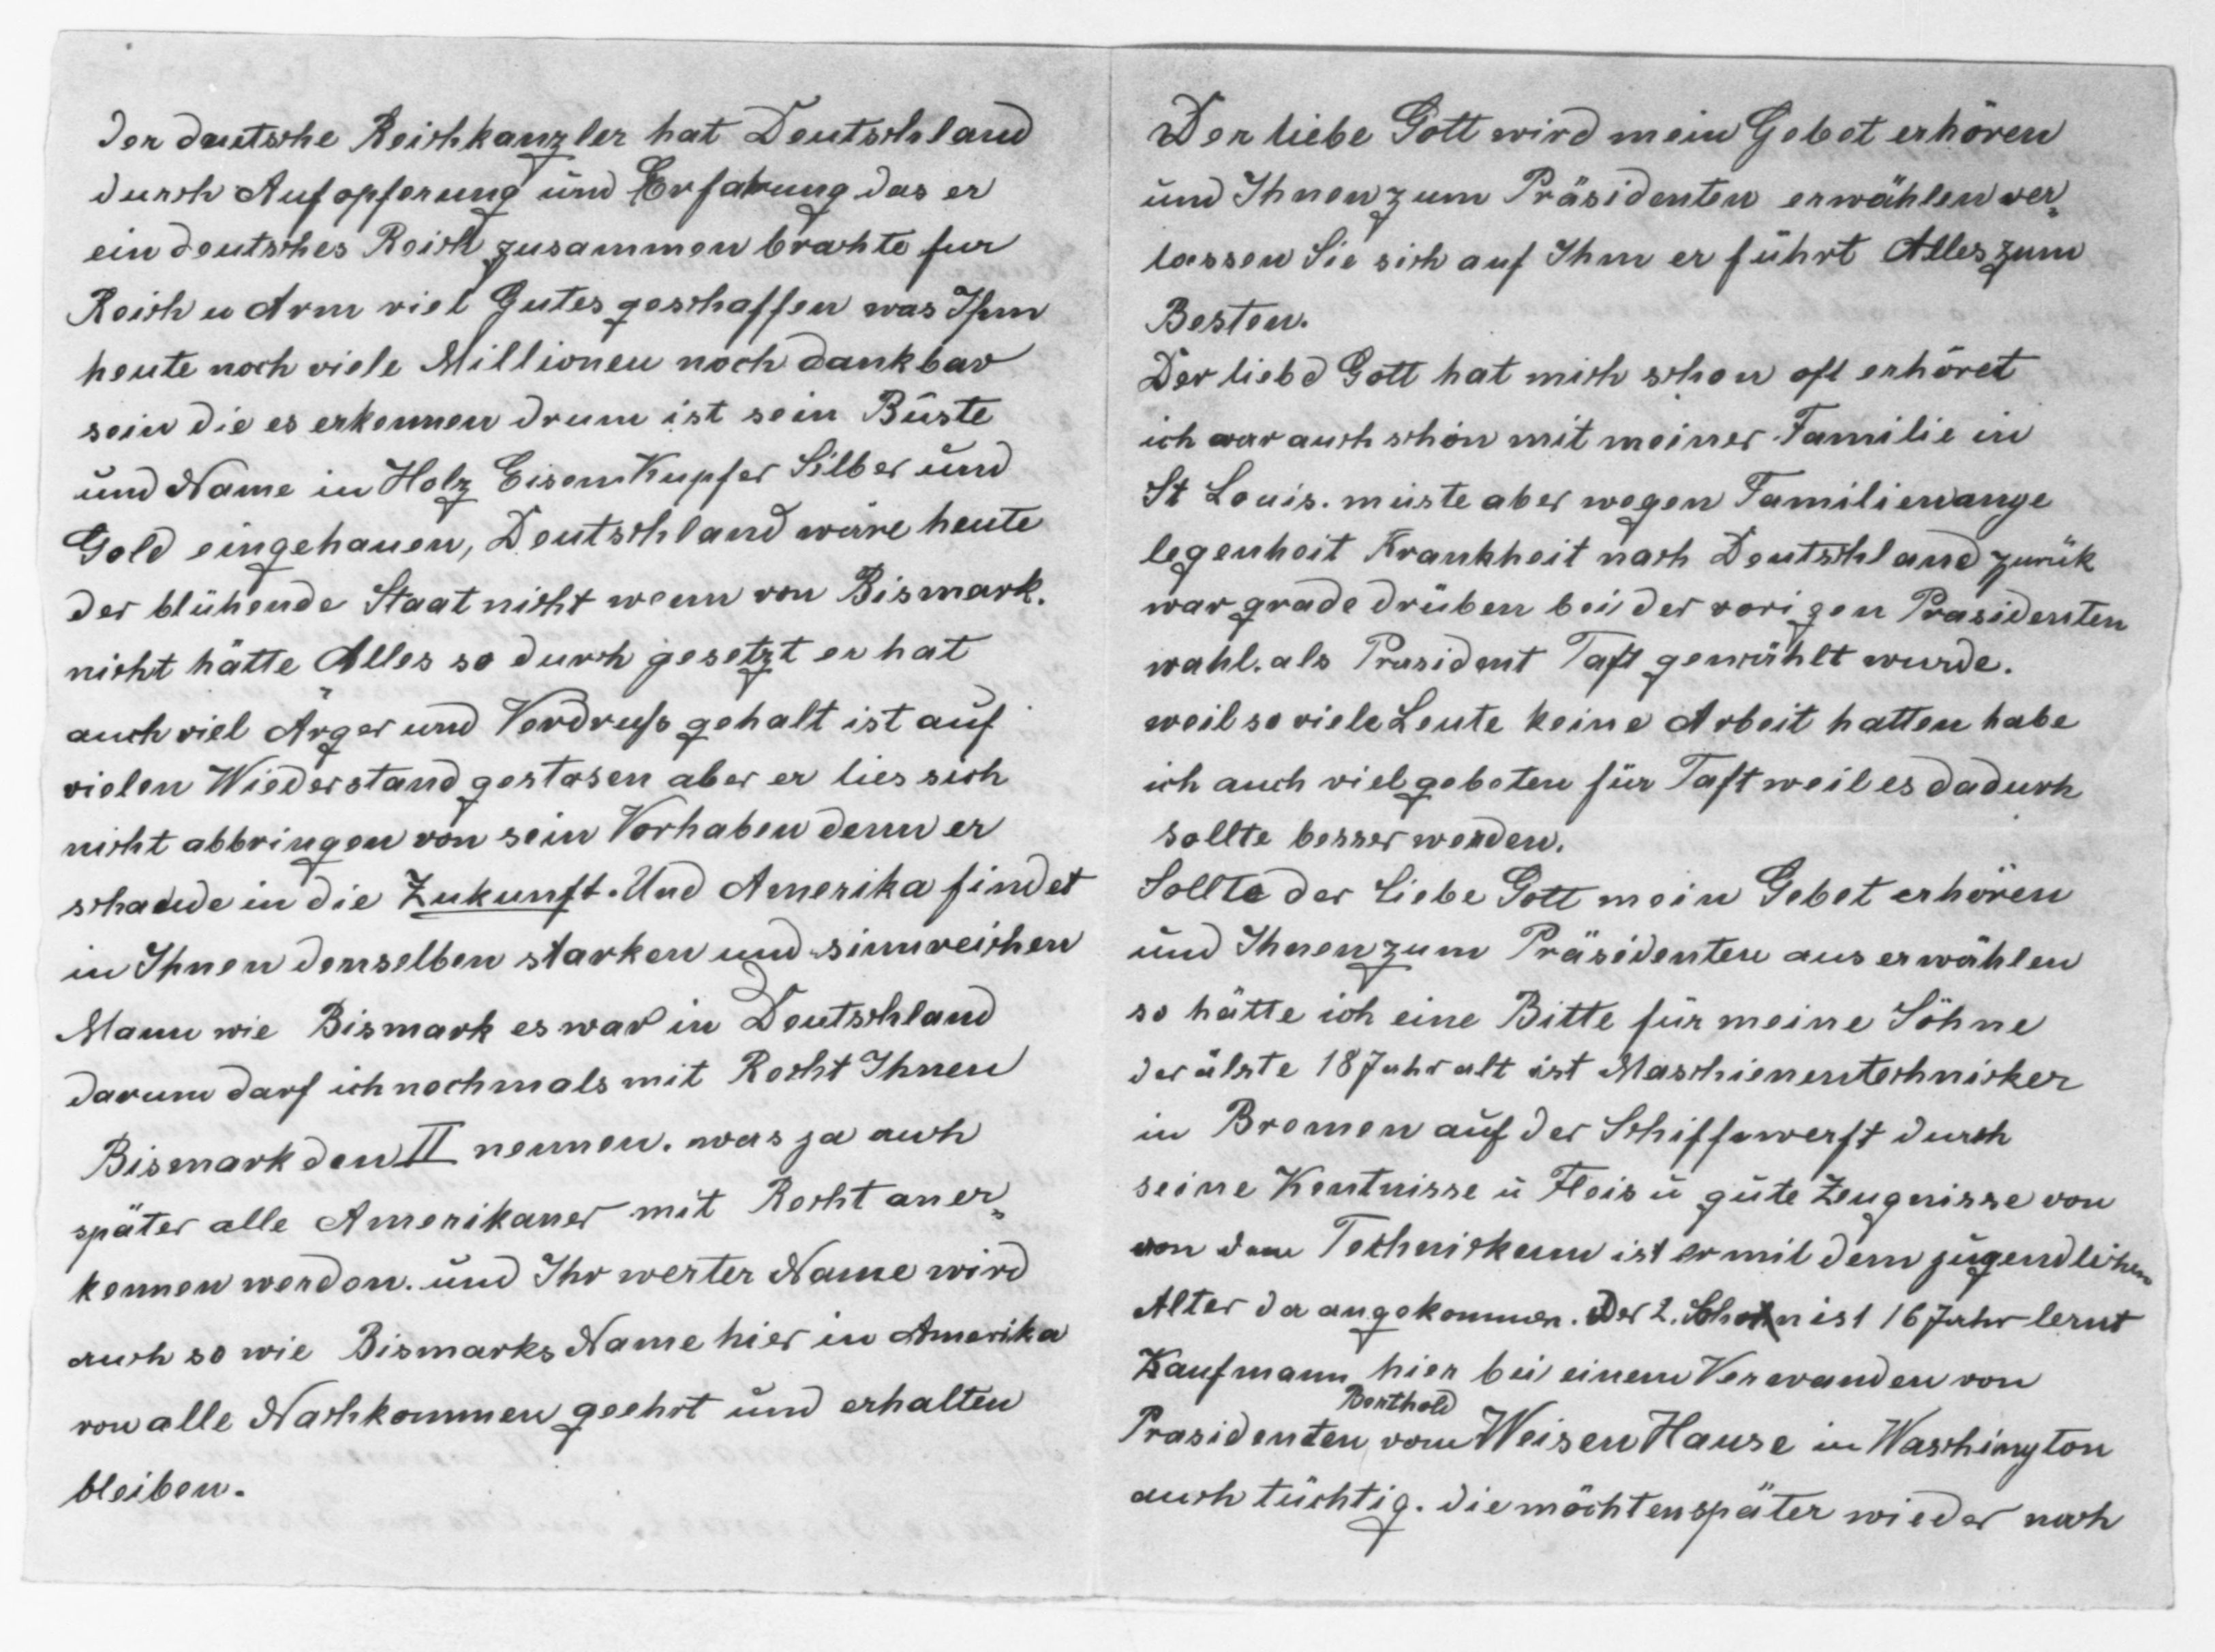 Der deutsche Reichkanzler hat Deutschland
durch Aufopferung und Erfahrung das er
ein deutsches Reich zusammen brachte fur
Reich u Arm viel Gutes geschaffen was Ihm
heute noch viele Millionen noch dankbar
sein die es erkennen drum ist sein Büste
und Name in Holz Eisen Kupfer Silber und
Gold eingehauen, Deutschland wäre heute
der blühende Staat nicht wenn von Bismark.
nicht hätte Alles so durch gesetzt er hat
auch viel Ärger und Verdruß gehalt ist auf
vielen Wiederstand gestosen aber er lies sich
nicht abbringen von sein Vorhaben denn er
schaude in die Zukunft. Und Amerika findet
in Ihnen denselben starken und sinnreichen
Mann wie Bismark es war in Deutschland
darum darf ich nochmals mit Recht Ihnen
Bismark den II nennen. was ja auch
später alle Amerikaner mit Recht aner=
kennen werden. und Ihr werter Name wird
auch so wie Bismarks Name hier in Amerika
von alle Nachkommen geehrt und erhalten
bleiben.
Der liebe Gott wird mein Gebet erhören
und Ihnen zum Präsidenten erwählen ver=
lassen Sie sich auf Ihm er führt Alles zum
Besten.
Der liebe Gott hat mich schon oft erhöret
ich war auch schon mit meiner Familie in
St Louis. muste aber wegen Familienange
legenheit Krankheit nach Deutschland zurük
war grade drüben bei der vorigen Prasidenten
wahl. als Prasident Taft gewählt wurde.
weil so viele Leute keine Arbeit hatten habe
ich auch viel gebeten für Taft weil es dadurh
sollte besser werden.
Sollte der Liebe Gott mein Gebet erhören
und Ihnen zum Präsidenten aus erwählen
so hätte ich eine Bitte für meine Söhne
der älste 18 Jahr alt ist Maschienentechnicker
in Bremen auf der Schiffswerft durch
seine Kentnisse u Fleis u gute Zeugnisse von
von dem Technickum ist er mit dem jugendlichen
Alter da angekommen. Der 2. Sohn ist 16 Jahr lernt
Kaufmann hier bei einem Verwanden von
Berthold
Prasidenten vom Weisen Hause in Waschington
auch tüchtig. die möchten später wieder nach